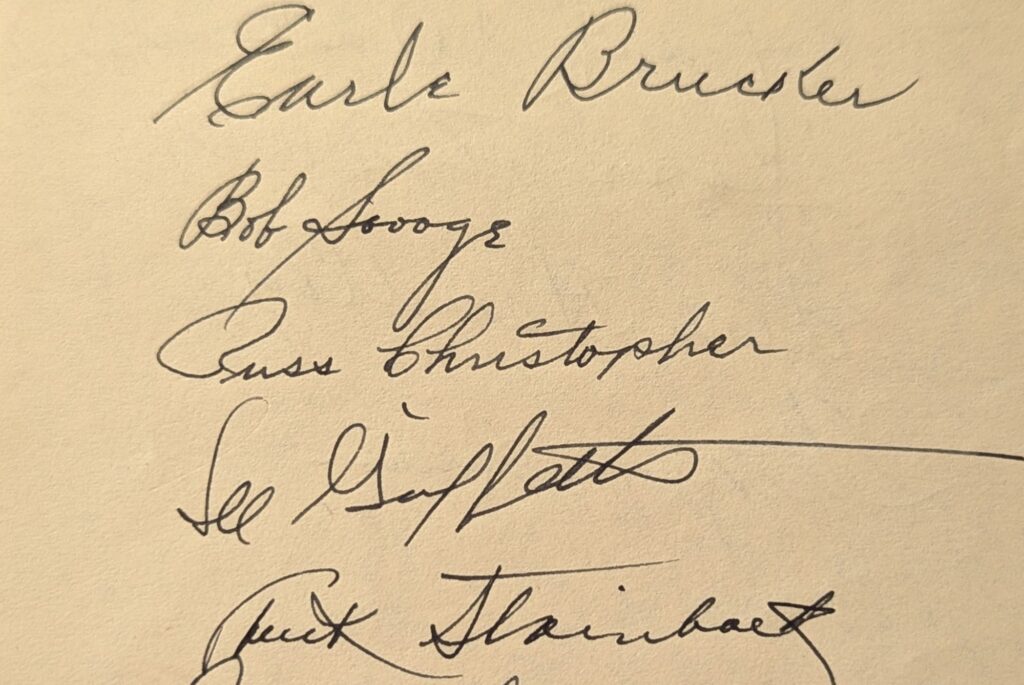 Earle Brucker
Bob Savage
Russ Christopher
Lee Griffeth
Tuck Stainback